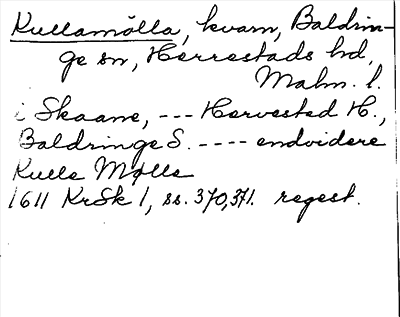 Kullamölla, kvarn, Baldrin-
ge sn, Herrestads hd,
Malm. l.
i Skaane, --- Herrested H.,
Baldringe S. ---- endvidere
Kulle Mølle
1611 KrSk 1, ss. 370, 371. regest.